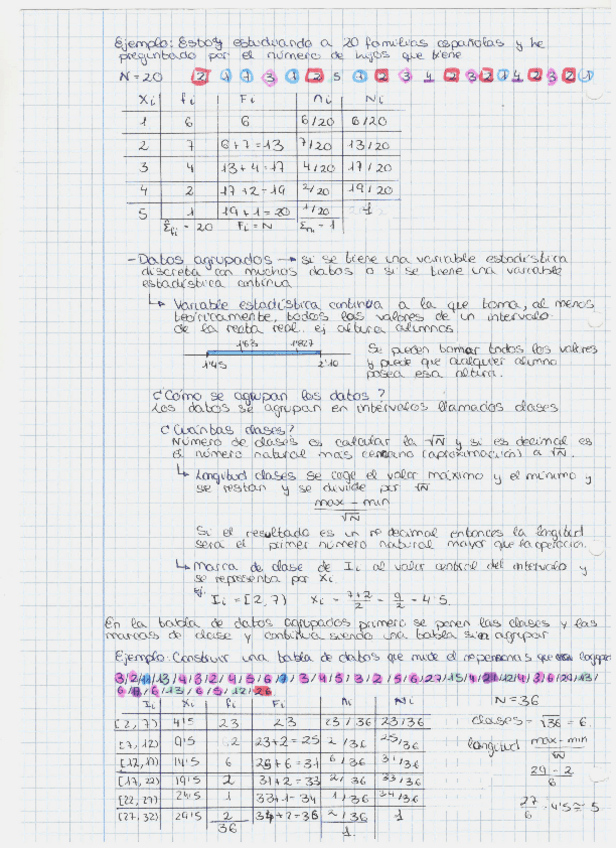 Ejemplo: Estoy estudiando a 20 familias españolas y he
preguntado por el número de hijos que tiene
N = 20 2 1 1 3 1 2 5 1 2 3 4 2 3 2 1 4 2 3 2 1
Xi fi Fi ni Ni
1 6 6 6/20 6/20
2 7 6+7=13 7/20 13/20
3 4 13+4=17 4/20 17/20
4 2 17+2=19 2/20 19/20
5 1 19+1=20 1/20 1
Σfi = 20 Fi = N Σni = 1
- Datos agrupados → si se tiene una variable estadística
discreta con muchos datos o si se tiene una variable
estadística continua
↳ Variable estadística continua a la que toma, al menos
teóricamente, todos los valores de un intervalo
de la recta real. ej altura alumnos
1'63 1'827
1'45 2'10
Se pueden tomar todos los valores
y puede que cualquier alumno
posea esa altura.
¿Cómo se agrupan los datos?
Los datos se agrupan en intervalos llamados clases
¿Cuántas clases?
Número de clases es calcular la √N y si es decimal es
el número natural mas cercano (aproximación) a √N.
↳ Longitud clases se coge el valor máximo y el mínimo y
se restan y se divide por √N
max - min
√N
Si el resultado es un nº decimal entonces la longitud
sera el primer número natural mayor que la operación.
↳ Marca de clase de Ii al valor central del intervalo y
se representa por Xi.
ej.
Ii = [2, 7) Xi = 7+2/2 = 9/2 = 4'5.
En la tabla de datos agrupados primero se ponen las clases y las
marcas de clase y continua siendo una tabla sin agrupar
Ejemplo: Construir una tabla de datos que mide el
N = 36
Ii Xi fi Fi ni Ni
[2, 7) 4'5 23 23 23/36 23/36
[7, 12) 9'5 2 23+2=25 2/36 25/36
[12, 17) 14'5 6 25+6=31 6/36 31/36
[17, 22) 19'5 2 31+2=33 2/36 33/36
[22, 27) 24'5 1 33+1=34 1/36 34/36
[27, 32) 29'5 2 34+2=36 2/36 1
36 1.
clases = √36 = 6
longitud max - min
√N
29 - 2
6
27/6 = 4'5 ≅ 5